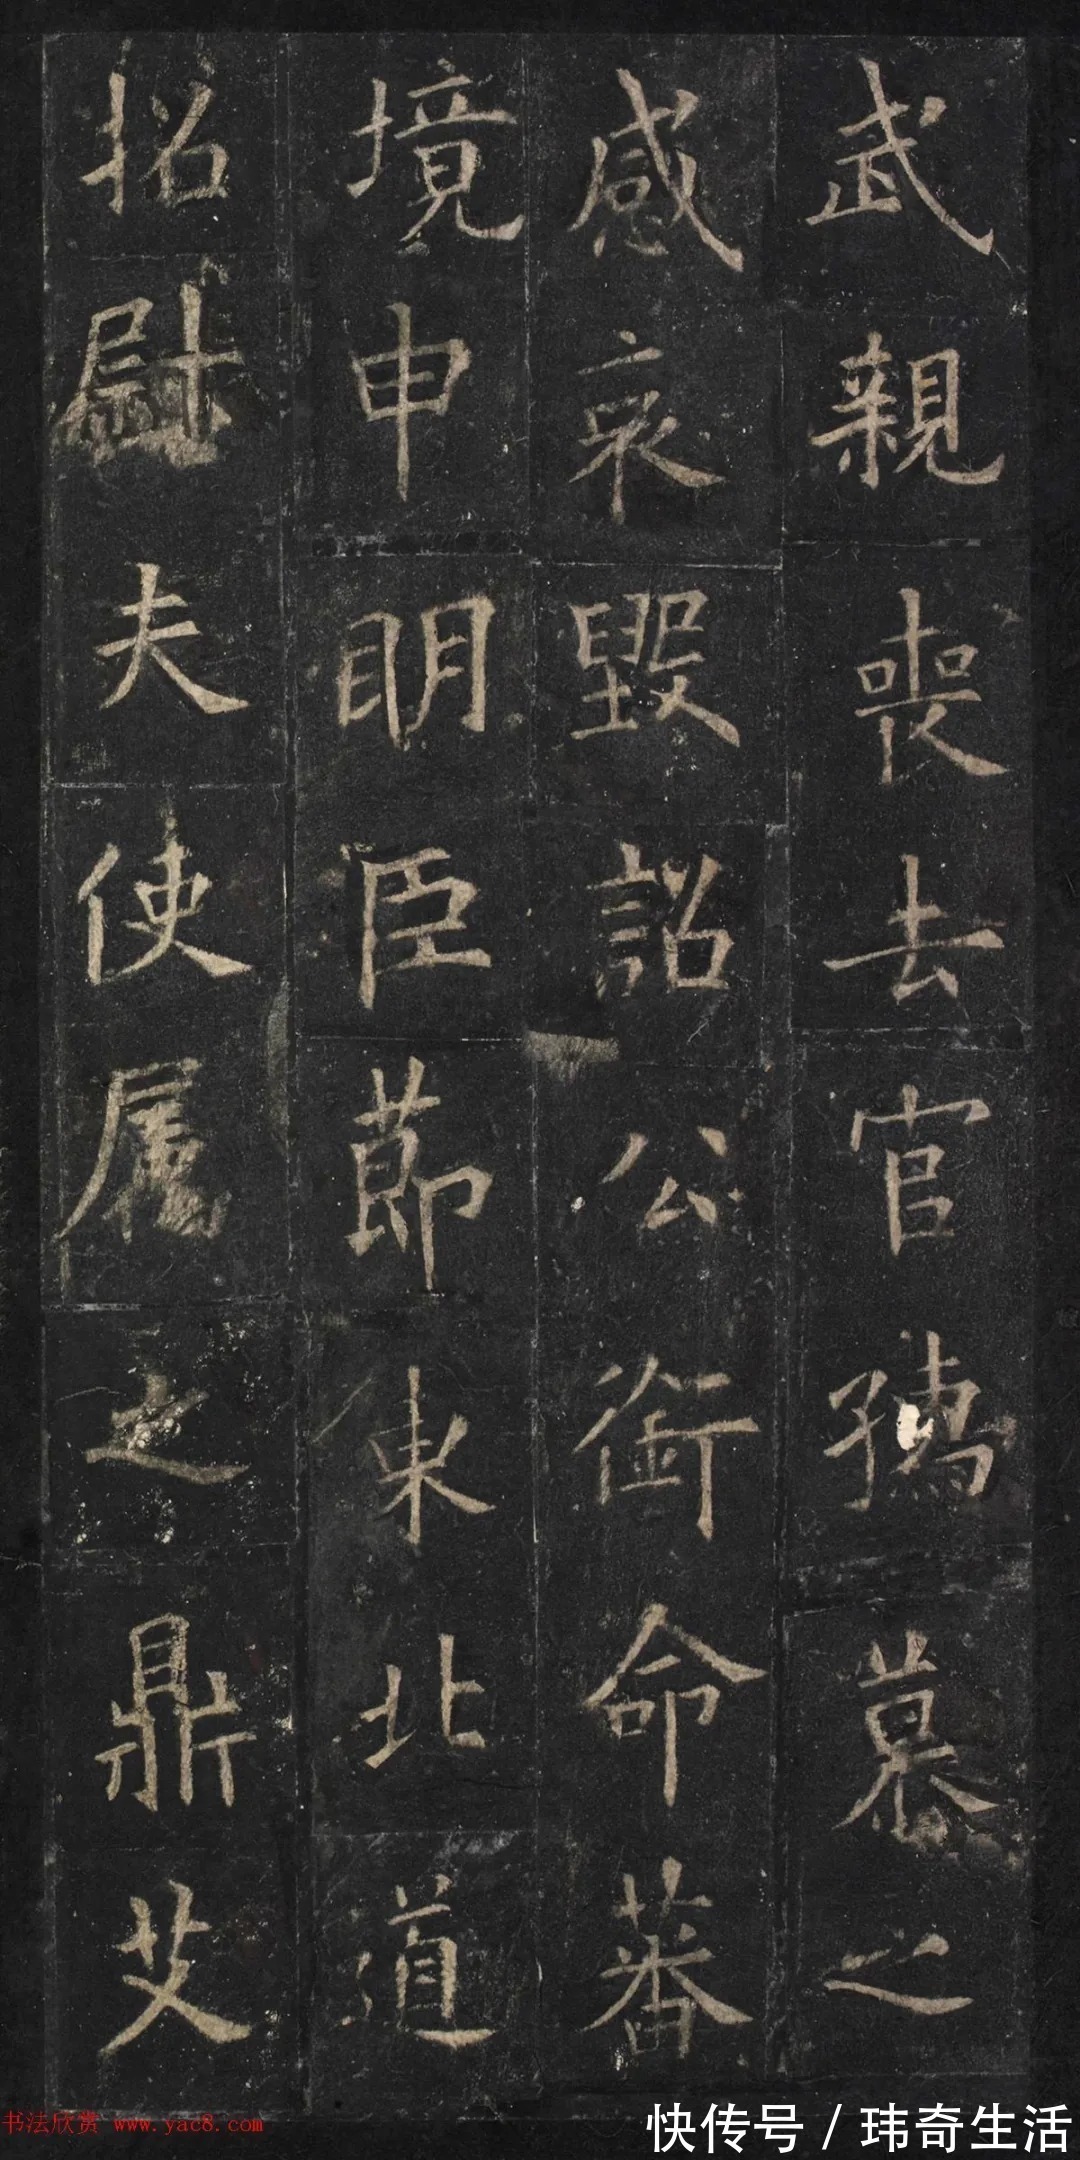 武親喪去官孺慕之
感哀毀詔公銜命蕃
境申明臣節東北道
招慰大使屬之鼎艾
书法欣赏 www.yac8.com
快传号 / 玮奇生活